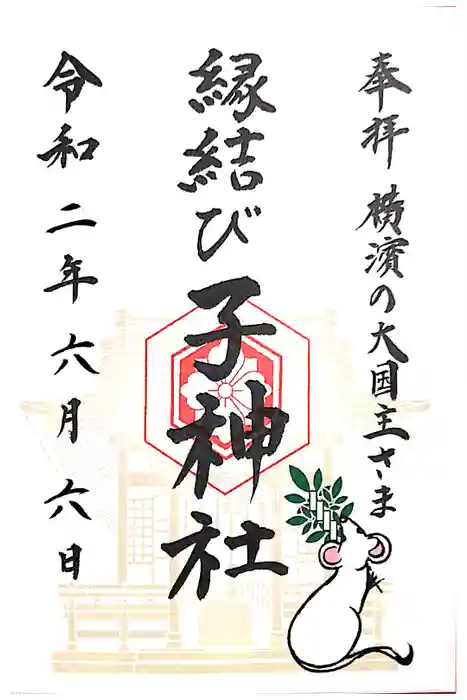 奉拝 横濱の大国主さま
縁結び子神社
令和二年六月六日